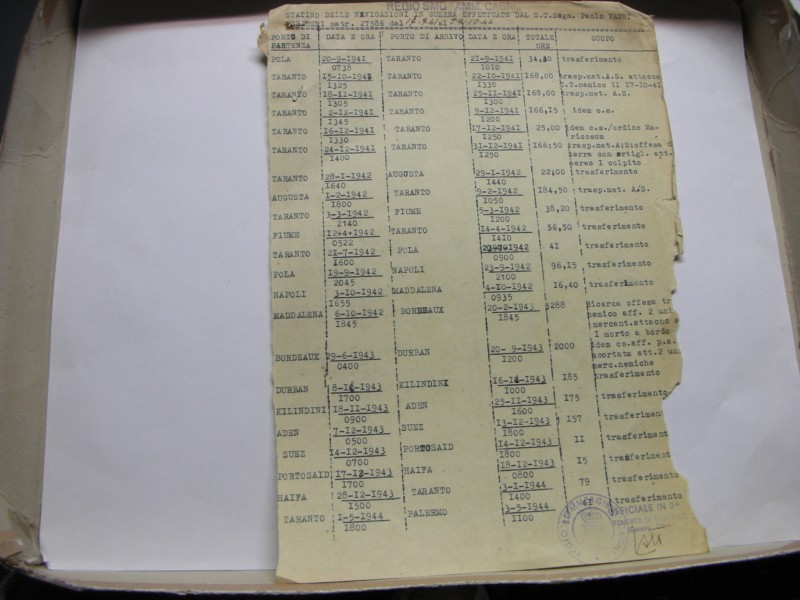 REGIO SMG "AMM. CAGNI"
STATINO DELLE NAVIGAZIONI IN GUERRA EFFETTUATE DAL S.C.Segn. Paolo VANNI
matr. 27586 dal al
PORTO DI PARTENZA DATA E ORA PORTO DI ARRIVO DATA E ORA TOTALE ORE SCOPO
POLA 20-9-1941 TARANTO 21-9-1941 34,30 trasferimento
0738 1010
TARANTO 15-10-1941 TARANTO 22-10-1941 168,00 trasp.mat.A.S. attacco
1325 1330 C.T.nemico il 17-10-41
TARANTO 18-11-1941 TARANTO 25-11-1941 168,00 trasp.mat. A.S.
1305 1300
TARANTO 2-12-1941 TARANTO 9-12-1941 166,15 idem c.s.
1345 1200
TARANTO 16-12-1941 TARANTO 17-12-1941 25,00 idem c.s./ordine Ma-
1330 1250 ricosom
TARANTO 24-12-1941 TARANTO 31-12-1941 166,50 trasp.mat.A.S:offesa d
1400 1250 terra con artigl. att.
aereo I colpito
TARANTO 28-1-1942 AUGUSTA 29-1-1942 22,00 trasferimento
1640 1440
AUGUSTA 1-2-1942 TARANTO 9-2-1942 184,50 trasp.mat. A.S.
1800 1050
TARANTO 3-3-1942 FIUME 5-3-1942 38,20 trasferimento
2140 1200
FIUME 12+4+1942 TARANTO 14-4-1942 36,50 trasferimento
0522 1410
TARANTO 21-7-1942 POLA 1942 41 trasferimento
1600 0900
POLA 19-9-1942 NAPOLI 23-9-1942 96,15 trasferimento
2045 2100
NAPOLI 3-10-1942 MADDALENA 4-10-1942 16,40 trasferimento
1655 0935
MADDALENA 6-10-1942 BORDEAUX 20-2-1943 3288 Ricerca offesa tr
1845 1845 nemico aff. 2 uni
mercant.attacco a
I morto a bordo
BORDEAUX 29-6-1943 DURBAN 20- 9-1943 2000 idem cs.aff. p.a.
0400 1200 scortata att.2 uni
merc.nemiche
DURBAN 8-11-1943 KILINDINI 16-11-1943 185 trasferimento
1700 1000
KILINDINI 18-11-1943 ADEN 25-11-1943 175 trasferimento
0900 1600
ADEN 7-12-1943 SUEZ 13-12-1943 157 trasferiment
0500 1800
SUEZ 14-12-1943 PORTOSAID 14-12-1943 11 trasferiment
0700 1800
PORTOSAID 17-12-1943 HAIFA 18-12-1943 15 trasferiment
1700 0800
HAIFA 28-12-1943 TARANTO 3-1-1944 79 trasferiment
1500 1400
TARANTO 1-5-1944 PALERMO 3-5-1944 41 trasferimento
1800 1100
UFFICIALE IN 2ª